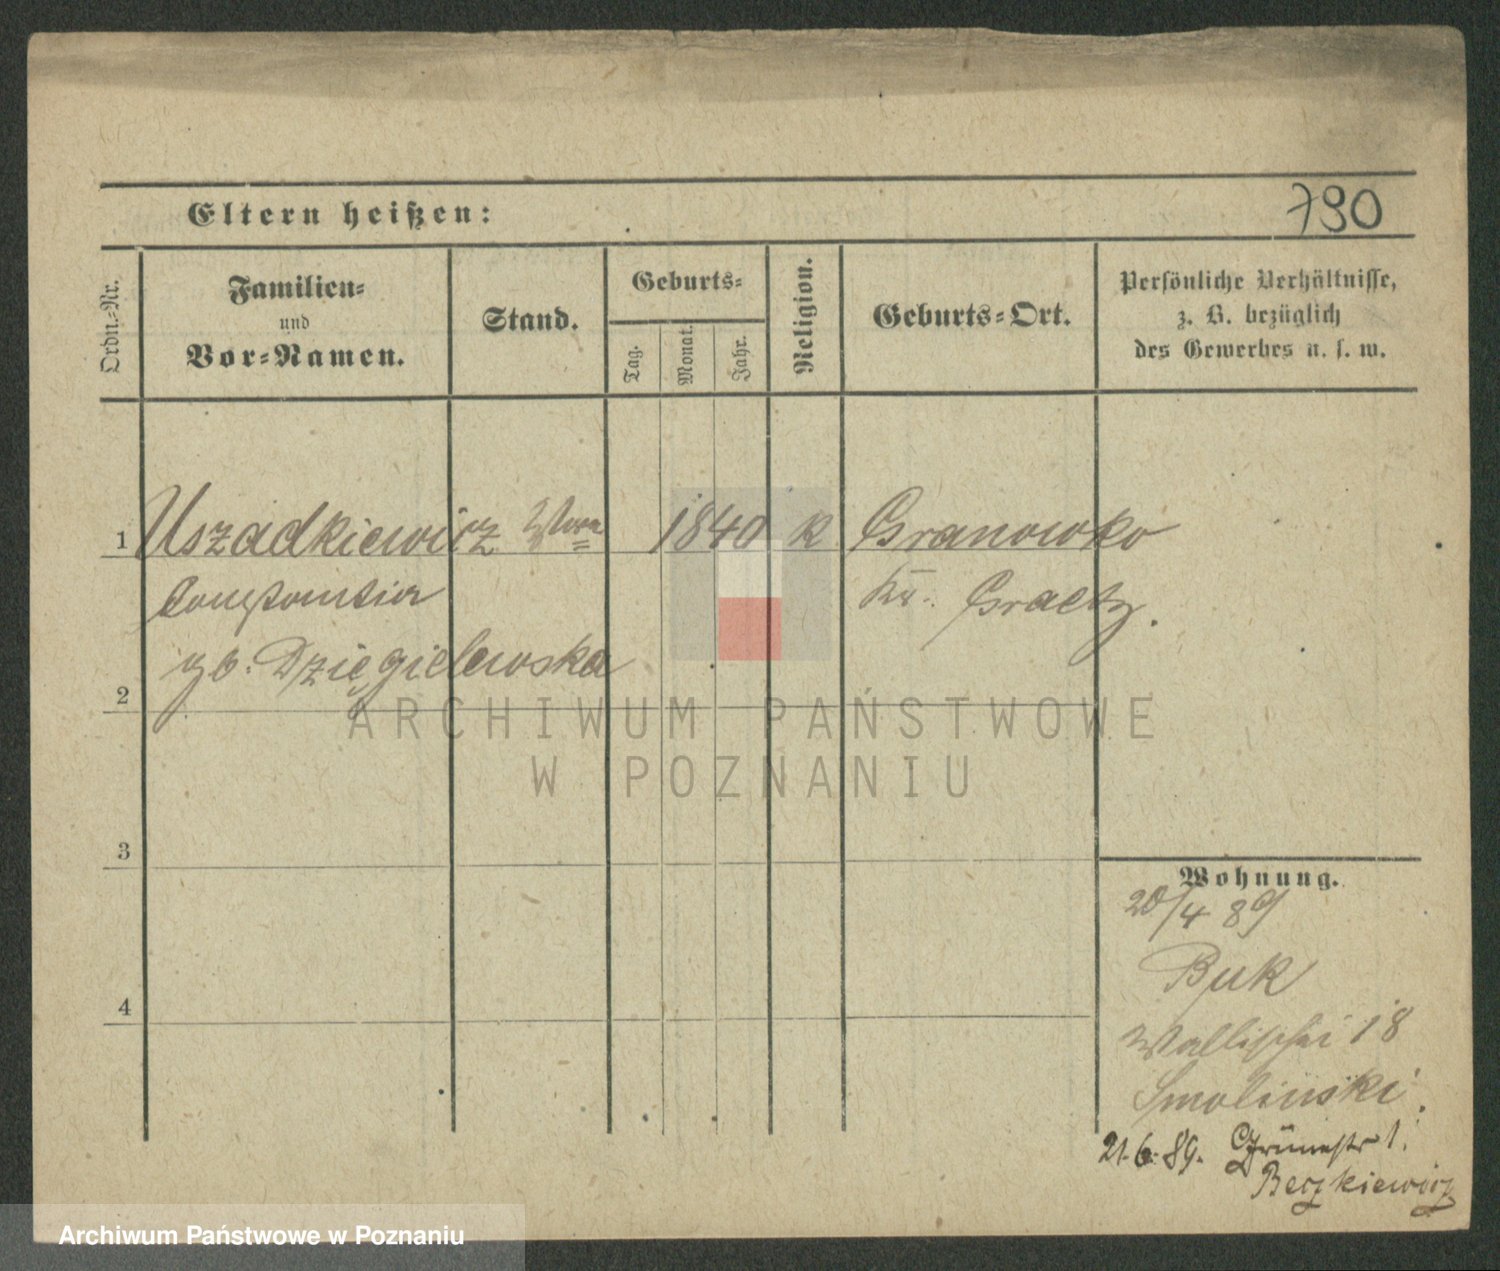 Eltern heißen:
790
Ordn.-Nr.
Familien-
und
Vor-Namen.
Stand.
Geburts-
Tag.
Monat.
Jahr.
Religion.
Geburts-Ort.
Persönliche Verhältnisse,
z. B. bezüglich
des Gewerbes u. s. w.
1 Uszadkiewicz Wwe 1840 k Granowko
Constantia Kr. Graetz.
gb. Dzięgielewska
2
ARCHIWUM PAŃSTWOWE
W POZNANIU
3
Wohnung.
20/4 89
Buk
4
Wallischei 18
Smolinski.
21.6.89. Grünestr 1.
Beczkiewicz
Archiwum Państwowe w Poznaniu